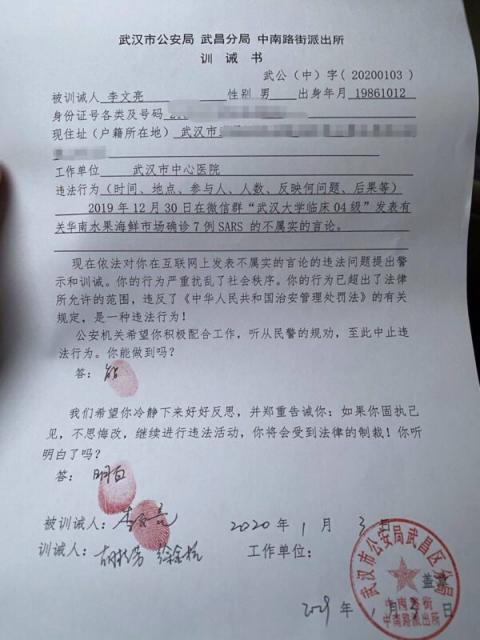 武汉市公安局 武昌分局 中南路街派出所
训 诫 书
武公(中)字(20200103)
被训诫人 李文亮 性别 男 出身年月 19861012
身份证号各类及号码
现住址(户籍所在地) 武汉市
工作单位 武汉市中心医院
违法行为(时间、地点、参与人、人数、反映何问题、后果等)
2019 年 12 月 30 日在微信群“武汉大学临床 04 级”发表有
关华南水果海鲜市场确诊 7 例 SARS 的不属实的言论。
现在依法对你在互联网上发表不属实的言论的违法问题提出警
示和训诫。你的行为严重扰乱了社会秩序。你的行为已超出了法律
所允许的范围,违反了《中华人民共和国治安管理处罚法》的有关
规定,是一种违法行为!
公安机关希望你积极配合工作,听从民警的规劝,至此中止违
法行为。你能做到吗?
答: 能
我们希望你冷静下来好好反思,并郑重告诫你:如果你固执己
见,不思悔改,继续进行违法活动,你将会受到法律的制裁!你听
明白了吗?
答: 明白
被训诫人: 李文亮 2020 年 1 月 3 日
训诫人: 工作单位:
武汉市公安局武昌区分局
盖章
中南路街
中南路派出所
年 月 日